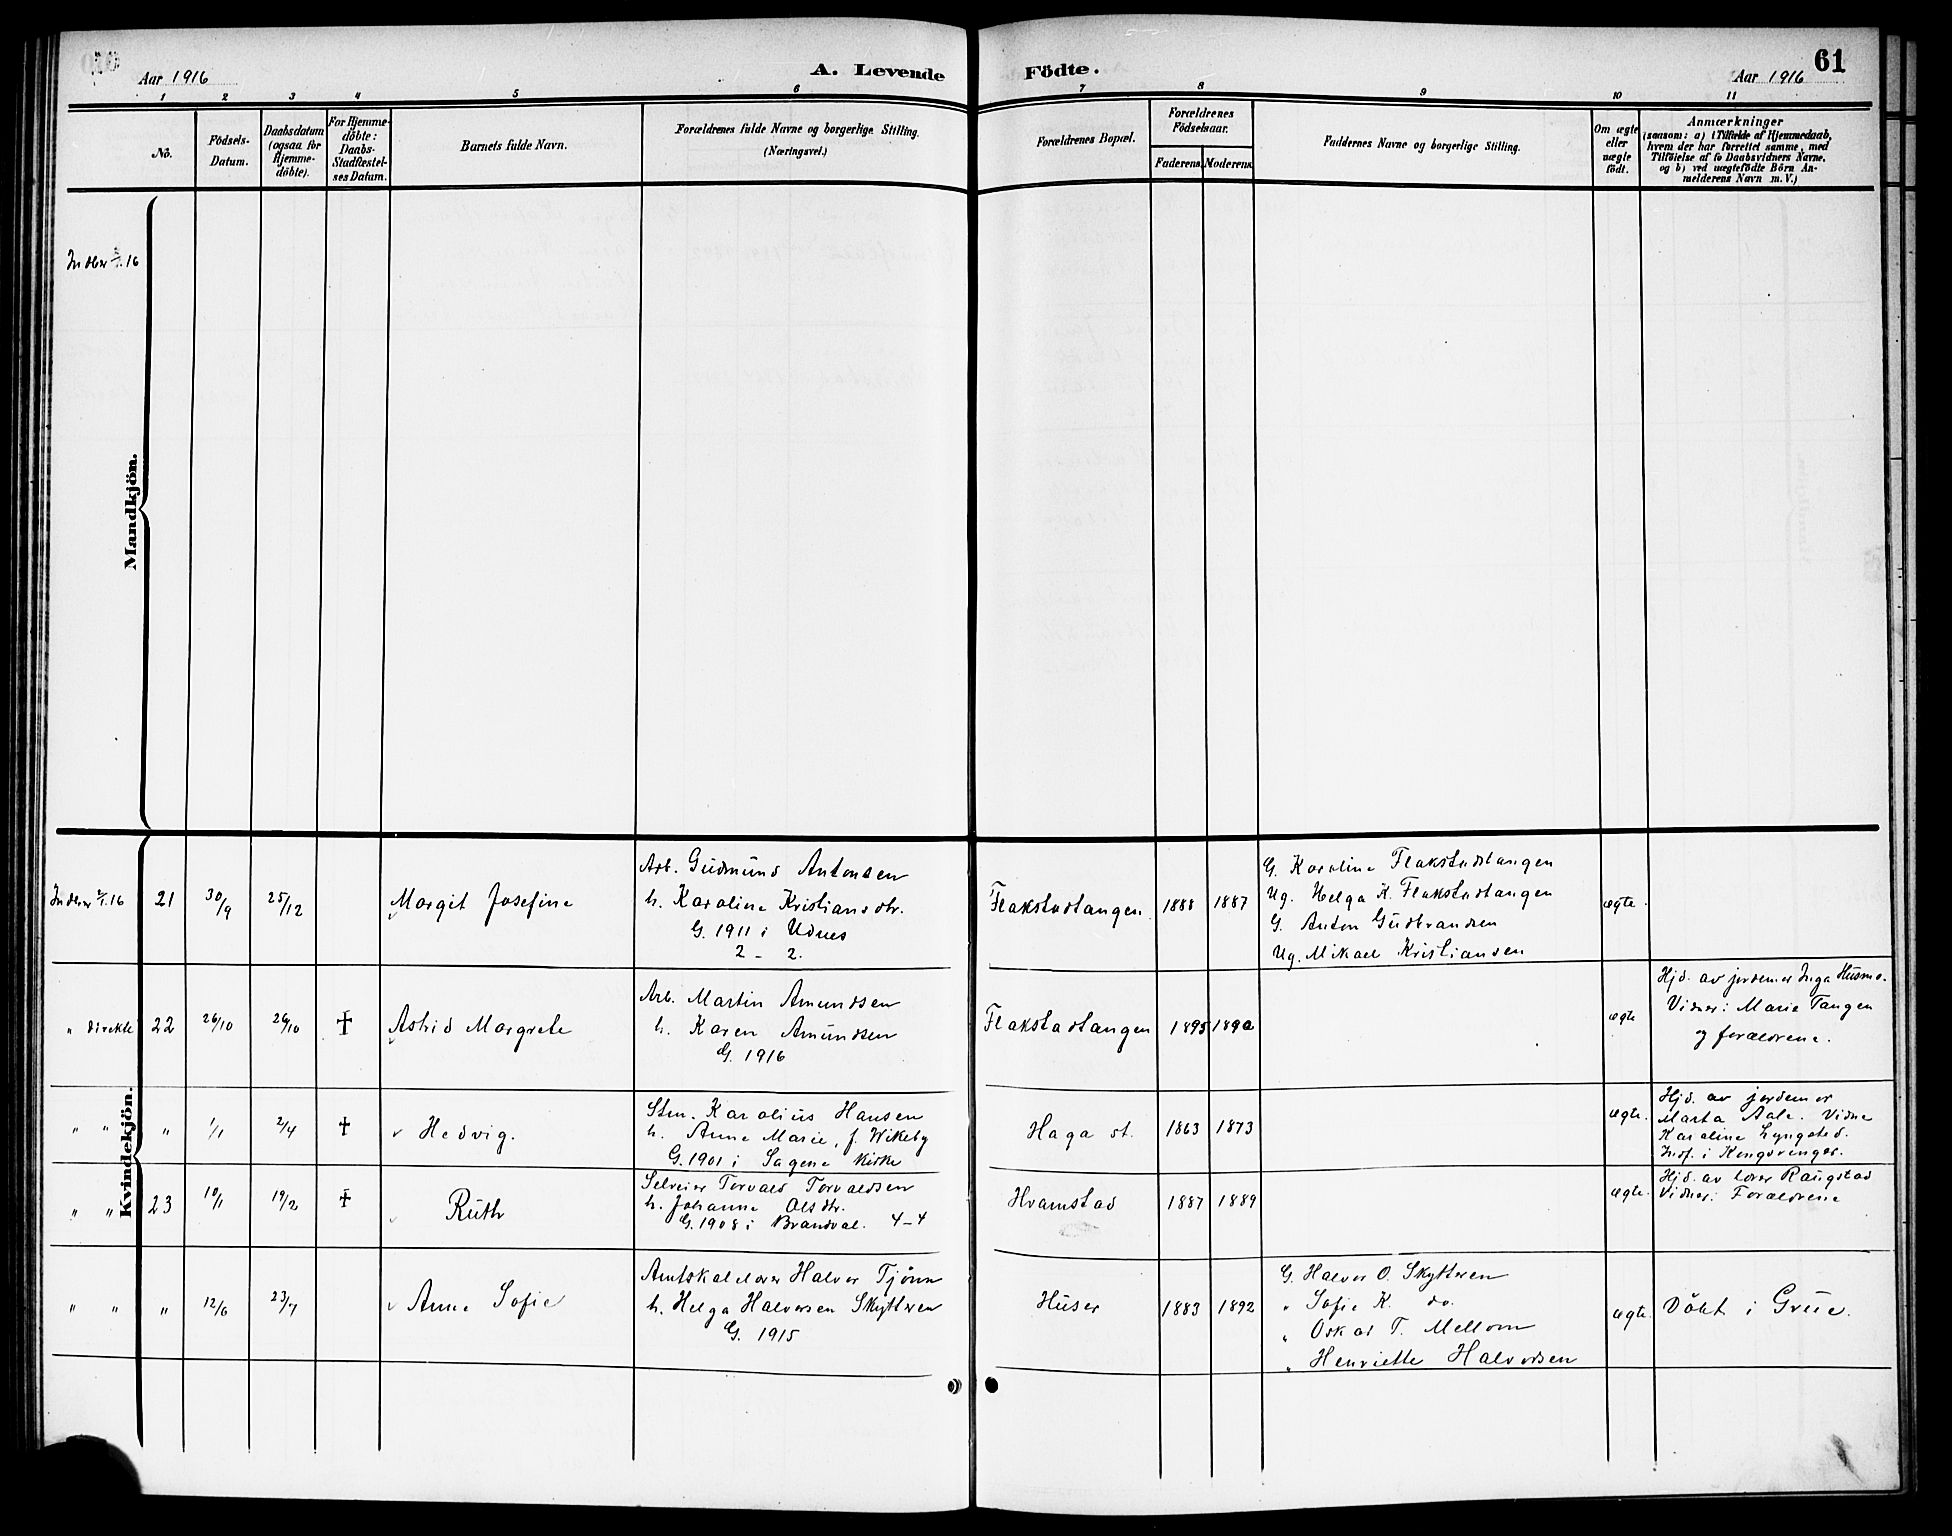 Aar 1916
A. Levende
Födte.
Aar 1916
61
1 2 3 4 5 6 7 8 9 10 11
Nò.
Födsels-
Datum.
Daabsdatum
(ogsaa for
Hjemme-
döbte).
For Hjemme-
döbte:
Daabs-
Stadfæstel-
ses Datum.
Barnets fulde Navn.
Forældrenes fulde Navne og borgerlige Stilling.
(Næringsvei.)
Forældrenes Bopæl.
Forældrenes
Födselsaar.
Faderens. Moderens.
Faddernes Navne og borgerlige Stilling.
Om ægte
eller
uægte
födt.
Anmærkninger
(saasom: a) i Tilfælde af Hjemmedaab,
hvem der har forrettet samme, med
Tilföielse af to Daabsvidners Navne,
og b) ved uægtefödte Börn An-
melderens Navn m. V.)
Mandkjön.
Kvindekjön.
21
30/9
25/12
Margit Josefine
Arb. Gudmund Antonsen
h. Karoline Kristiansdtr.
G. 1911 i Udnes
2 - 2.
Flakstadtangen
1888 1887
G. Karoline Flakstadtangen
Ug. Helga K. Flakstadtangen
G. Anton Gudbrandsen
Ug. Mikael Kristiansen
ægte.
" direkte
22
26/10
26/10
†
Astrid Margrete
Arb. Martin Amundsen
h. Karen Amundsen
G. 1916
Flakstadtangen
1895 1890
ægte
Hjd. av jordemor Inga Husmo.
Vidner: Marie Tangen
og forældrene.
" "
"
1/1
2/4
†
Hedvig.
Stm. Karolius Hansen
h. Anne Marie, f. Wikeby
G. 1901 i Sagene kirke
Haga st.
1863 1873
ægte.
Hjd. av jordemor
Marta Aale. Vidne
Karoline Lyngstad.
Indf. i Kongsvinger.
" "
23
10/1
19/2
†
Ruth
Torvald Torvaldsen
h. Johanne Olsdtr.
G. 1908 i Brandval. 4-4
Hvamstad
1887 1889
ægte.
Hjd. av lærer Raugstad
Vidner: Forældrene
" "
"
12/6
23/7
Anne Sofie
Halvor Tjönn
h. Helga Halvorsen Skytteren
G. 1915
Huser
1883 1892
G. Halvor O. Skytteren
" Sofie K. do.
" Oskar T. Mellom
" Henriette Halvorsen
ægte.
Döbt i Grue.